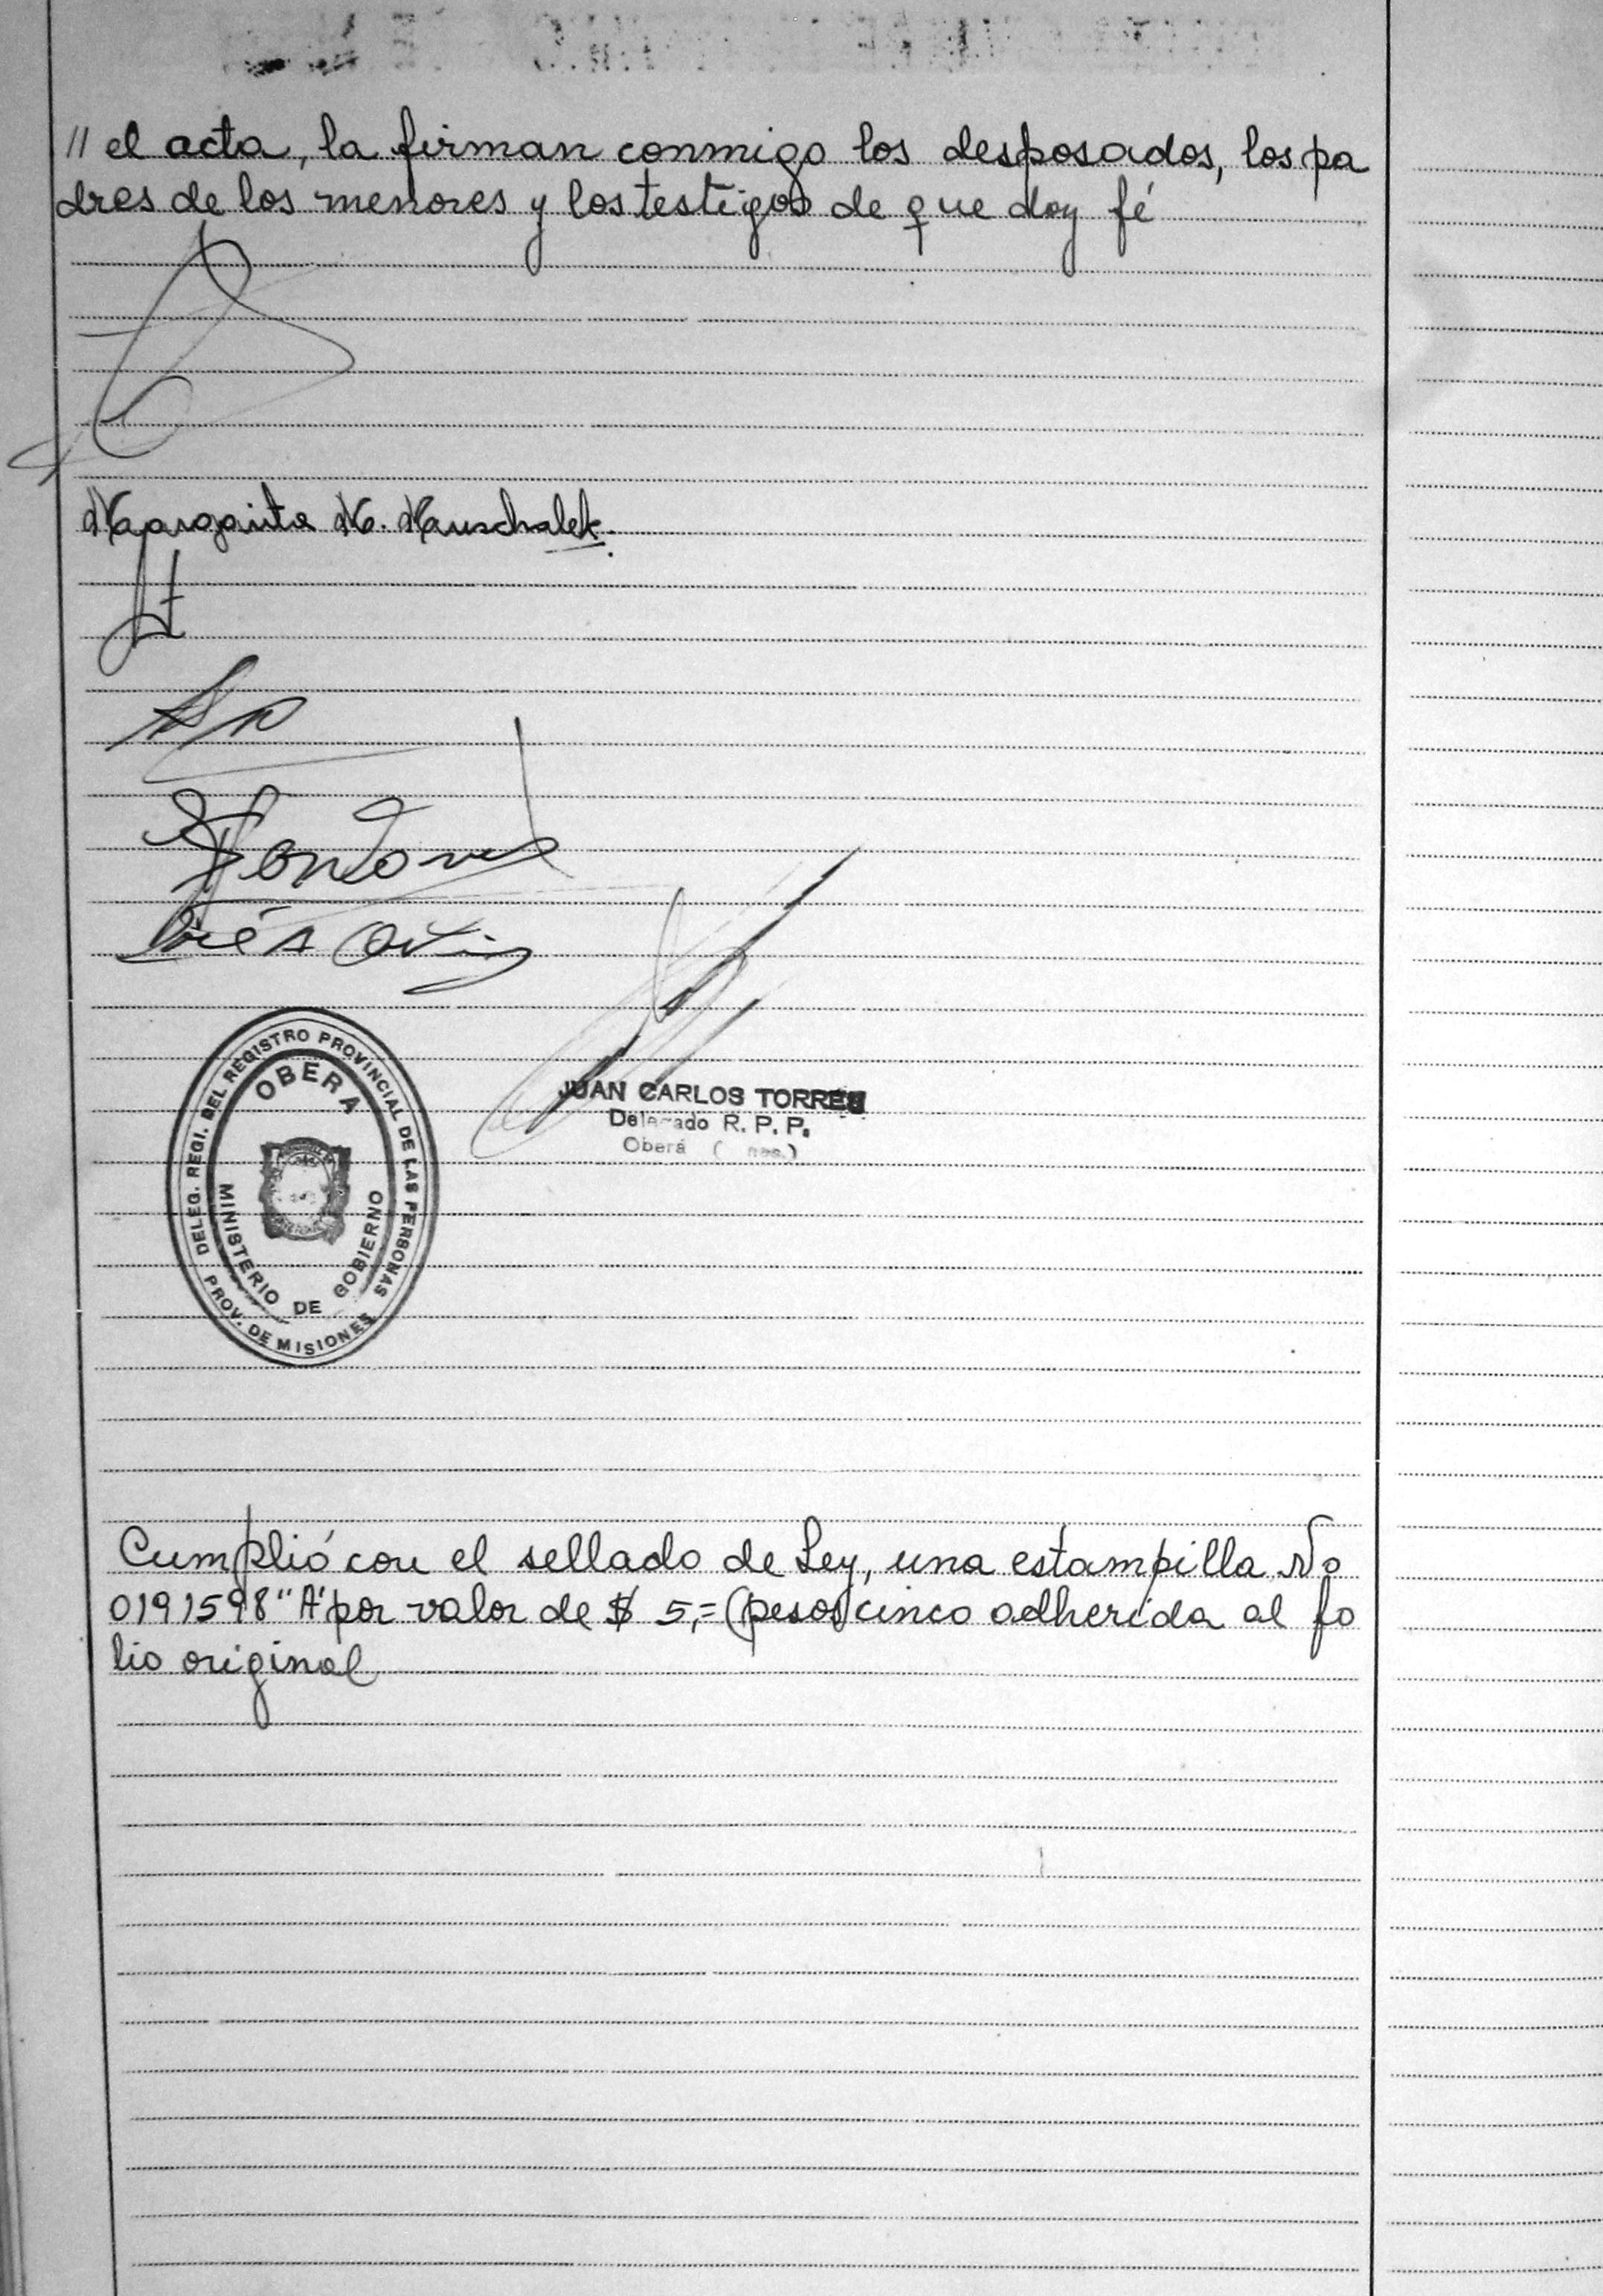 // el acta, la firman conmigo los desposados, los pa
dres de los menores y los testigos de que doy fé
Margarita M. Mauschalek.
DELEG. REGI. DEL REGISTRO PROVINCIAL DE LAS PERSONAS
OBERA
MINISTERIO DE GOBIERNO
PROV. DE MISIONES
JUAN CARLOS TORRES
Delegado R. P. P.
Oberá
Cumplió con el sellado de Ley, una estampilla No
0191598 "A" por valor de $ 5,= (pesos cinco adherida al fo
lio original